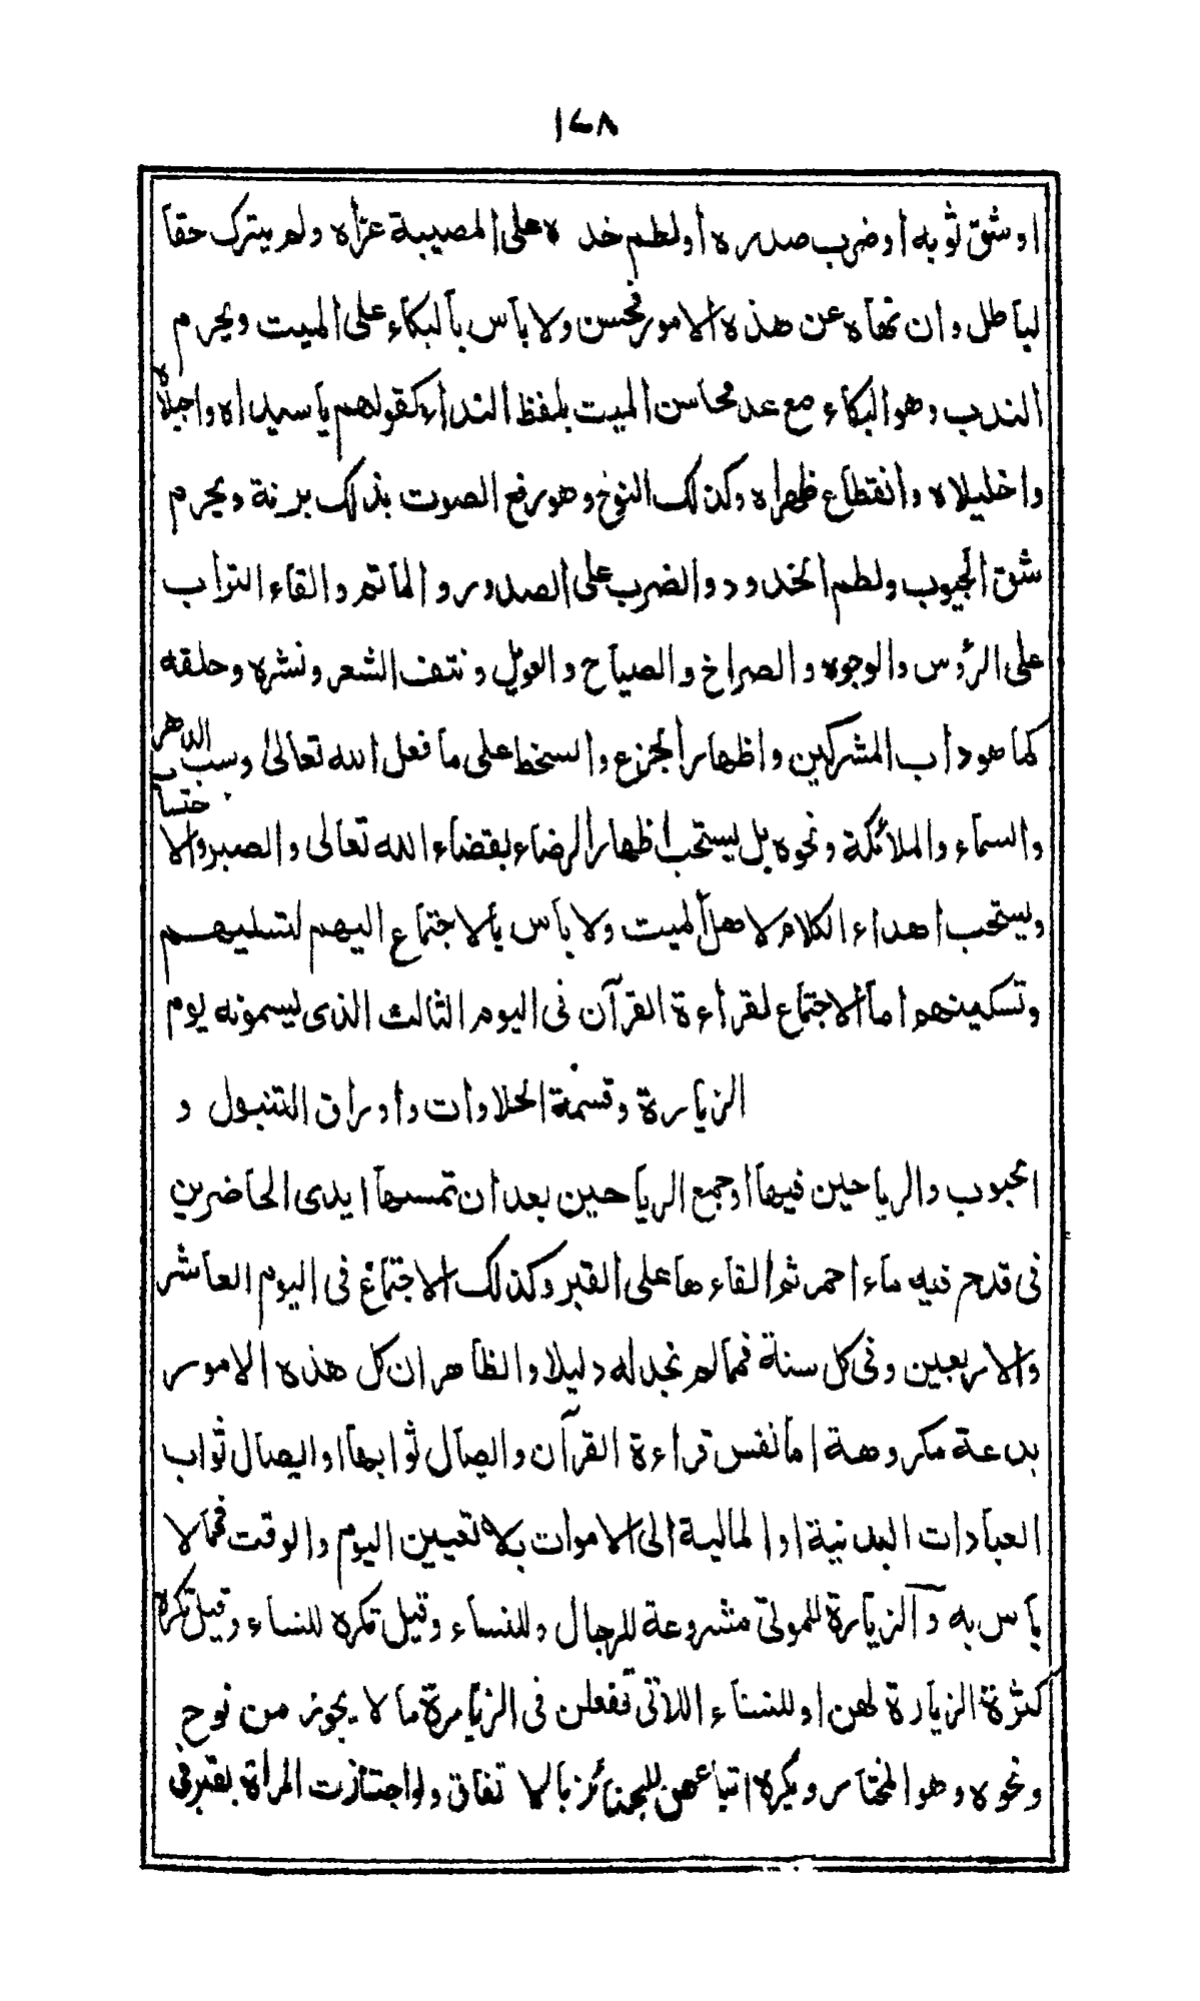 ١٤٨
اوشق ثوبه أوضرب صدره أولطم خده على المصيبة عزاه ولم يترك حقا
لباطل وان نهاه عن هذه الامور فحسن ولا بأس بألبكاء على الميت ويحرم
الندب وهو البكاء مع عد محاسن الميت بلفظ النداء كقولهم يا سيداه واجبلاه
واخليلاه وانقطاع ظهراه وكذلك النوح وهو رفع الصوت بذلك برنة ويحرم
شق الجيوب ولطم الخدود والضرب على الصدور والماتم والقاء التراب
على الرؤس والوجوه والصراخ والصياح والعويل ونتف الشعر ونشره وحلقه
كما هو دأب المشركين واظهار الجزع والسخط على ما فعل الله تعالى وسب الدهر
والسماء والملائكة ونحوه بل يستحب اظهار الرضاء بقضاء الله تعالى والصبر والاحتساب
ويستحب اهداء الكلام لاهل الميت ولا بأس بالاجتماع اليهم لتسليهم
وتسكينهم اما الاجتماع لقراءة القرآن في اليوم الثالث الذى يسمونه يوم
الزيارة وقسمة الحلاوات وأوراق التنبول و
الحبوب والرياحين فيها اوجمع الرياحين بعد ان تمسها ايدى الحاضرين
فى قدح فيه ماء احمر ثم القاءها على القبر وكذلك الاجتماع فى اليوم العاشر
والاربعين وفى كل سنة فمما لم نجد له دليلا والظاهر ان كل هذه الامور
بدعة مكروهة اما نفس قراءة القرآن وايصال ثوابها او ايصال ثواب
العبادات البدنية او المالية الى الاموات بلا تعيين اليوم والوقت فمما لا
بأس به والزيارة للموتى مشروعة للرجال وللنساء وقيل تكره للنساء وقيل تكره
كثرة الزيارة لهن او للنساء اللاتى تفعلن فى الزيارة ما لا يجوز من نوح
ونحوه وهو المختار ويكره اتباعهن للجنائز بالاتفاق ولو اجتازت المرأة بقبر فى